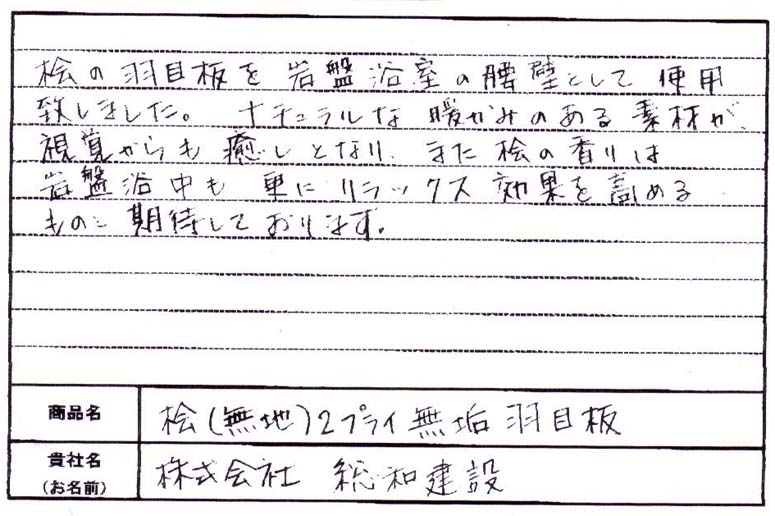 桧の羽目板を岩盤浴室の腰壁として使用
致しました。ナチュラルな暖かみのある素材が、
視覚からも癒しとなり、また桧の香りは
岩盤浴中も更にリラックス効果を高める
ものと期待しております。
商品名 桧(無地)2プライ無垢羽目板
貴社名 株式会社 総和建設
(お名前)